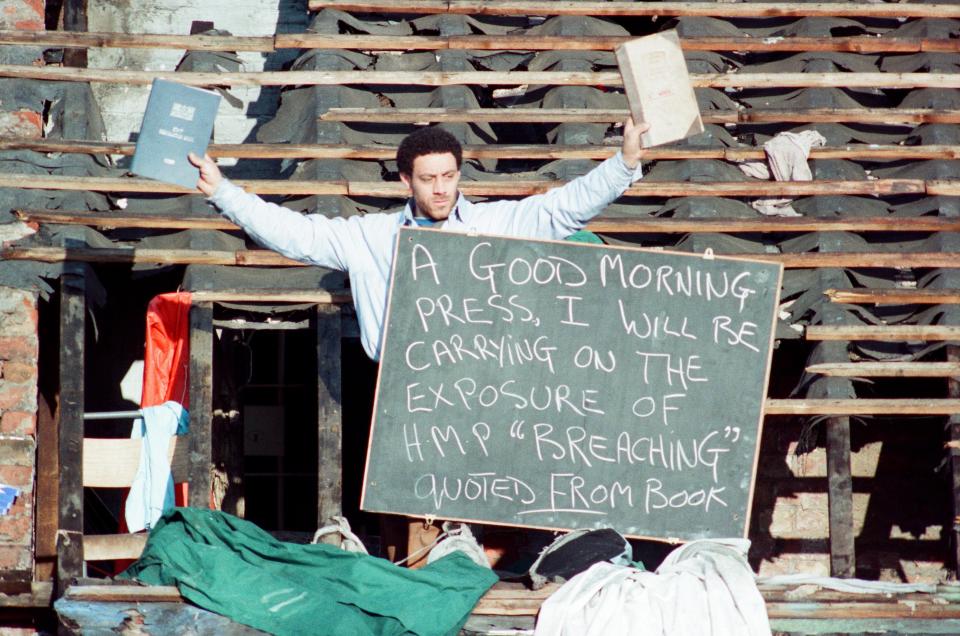 A GOOD MORNING
PRESS, I WILL BE
CARRYING ON THE
EXPOSURE OF
H.M.P "BREACHING"
QUOTED FROM BOOK